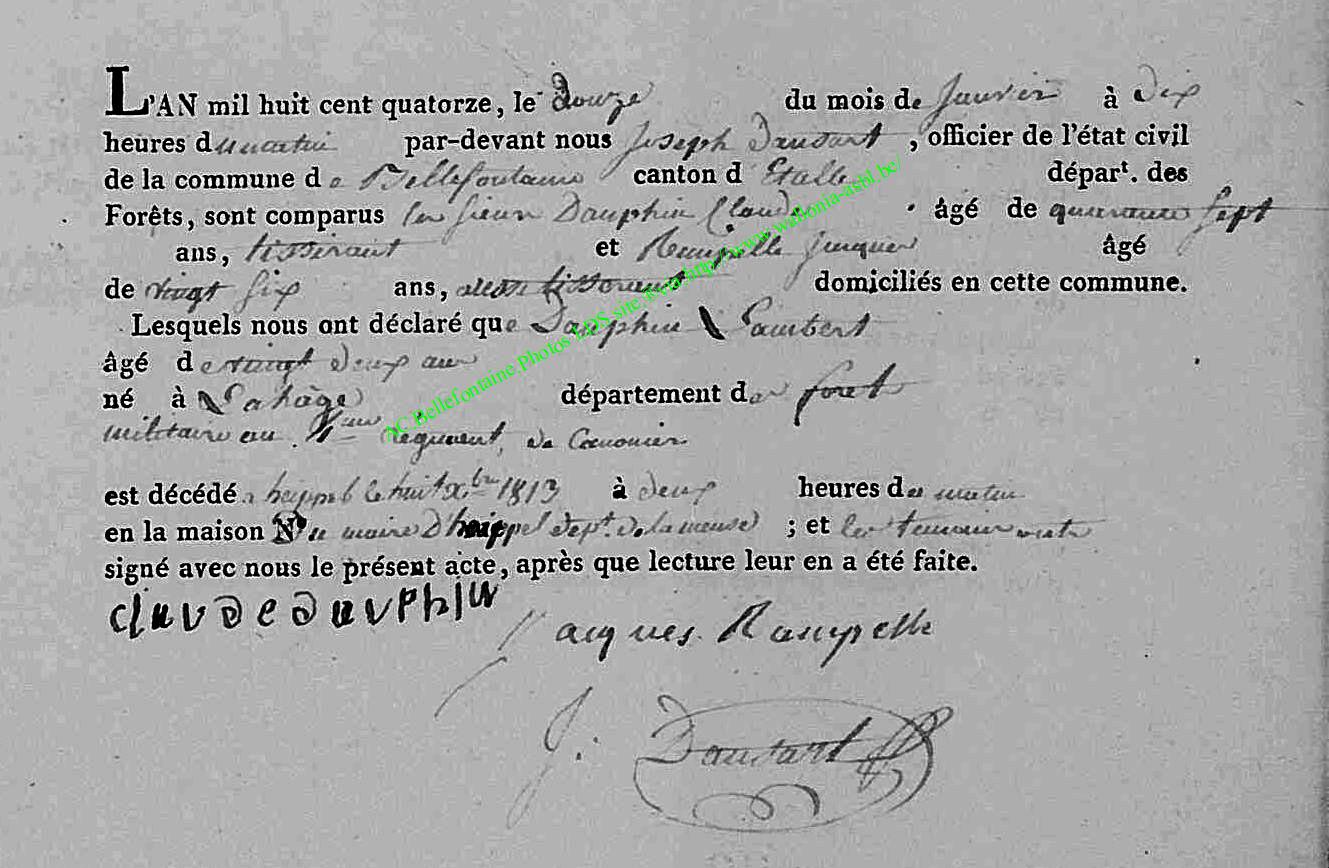 L'AN mil huit cent quatorze, le douze du mois de Janvier à dix
heures du matin par-devant nous Joseph Dausart, officier de l'état civil
de la commune de Bellefontaine canton d Etalle départ. des
Forêts, sont comparus les sieur Dauphin Claude âgé de quarante sept
ans, tisserant et Rampelle Jacques âgé
de vingt six ans, tisserant domiciliés en cette commune.
Lesquels nous ont déclaré que Dauphin Lambert
âgé de vingt deux ans
né à Lahage département des foret
militaire au regiment de Canonier
est décédé a heippel le huit xbre 1813 à deux heures du matin
en la maison du maire d'heippel dept. de la meuse ; et les temoins
signé avec nous le présent acte, après que lecture leur en a été faite.
claude dauphin
Jacques Rampelle
J. Dausart
AC.Bellefontaine.Photos LDS site http://www.wallonia-asbl.be/